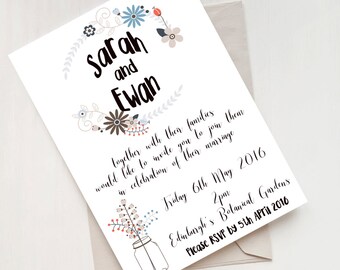 Sarah
and
Ewan
Together with their families
would like to invite you to join them
in celebration of their marriage
Friday 6th May 2016
2pm
Edinburgh's Botanical Gardens
Please RSVP by 5th April 2016